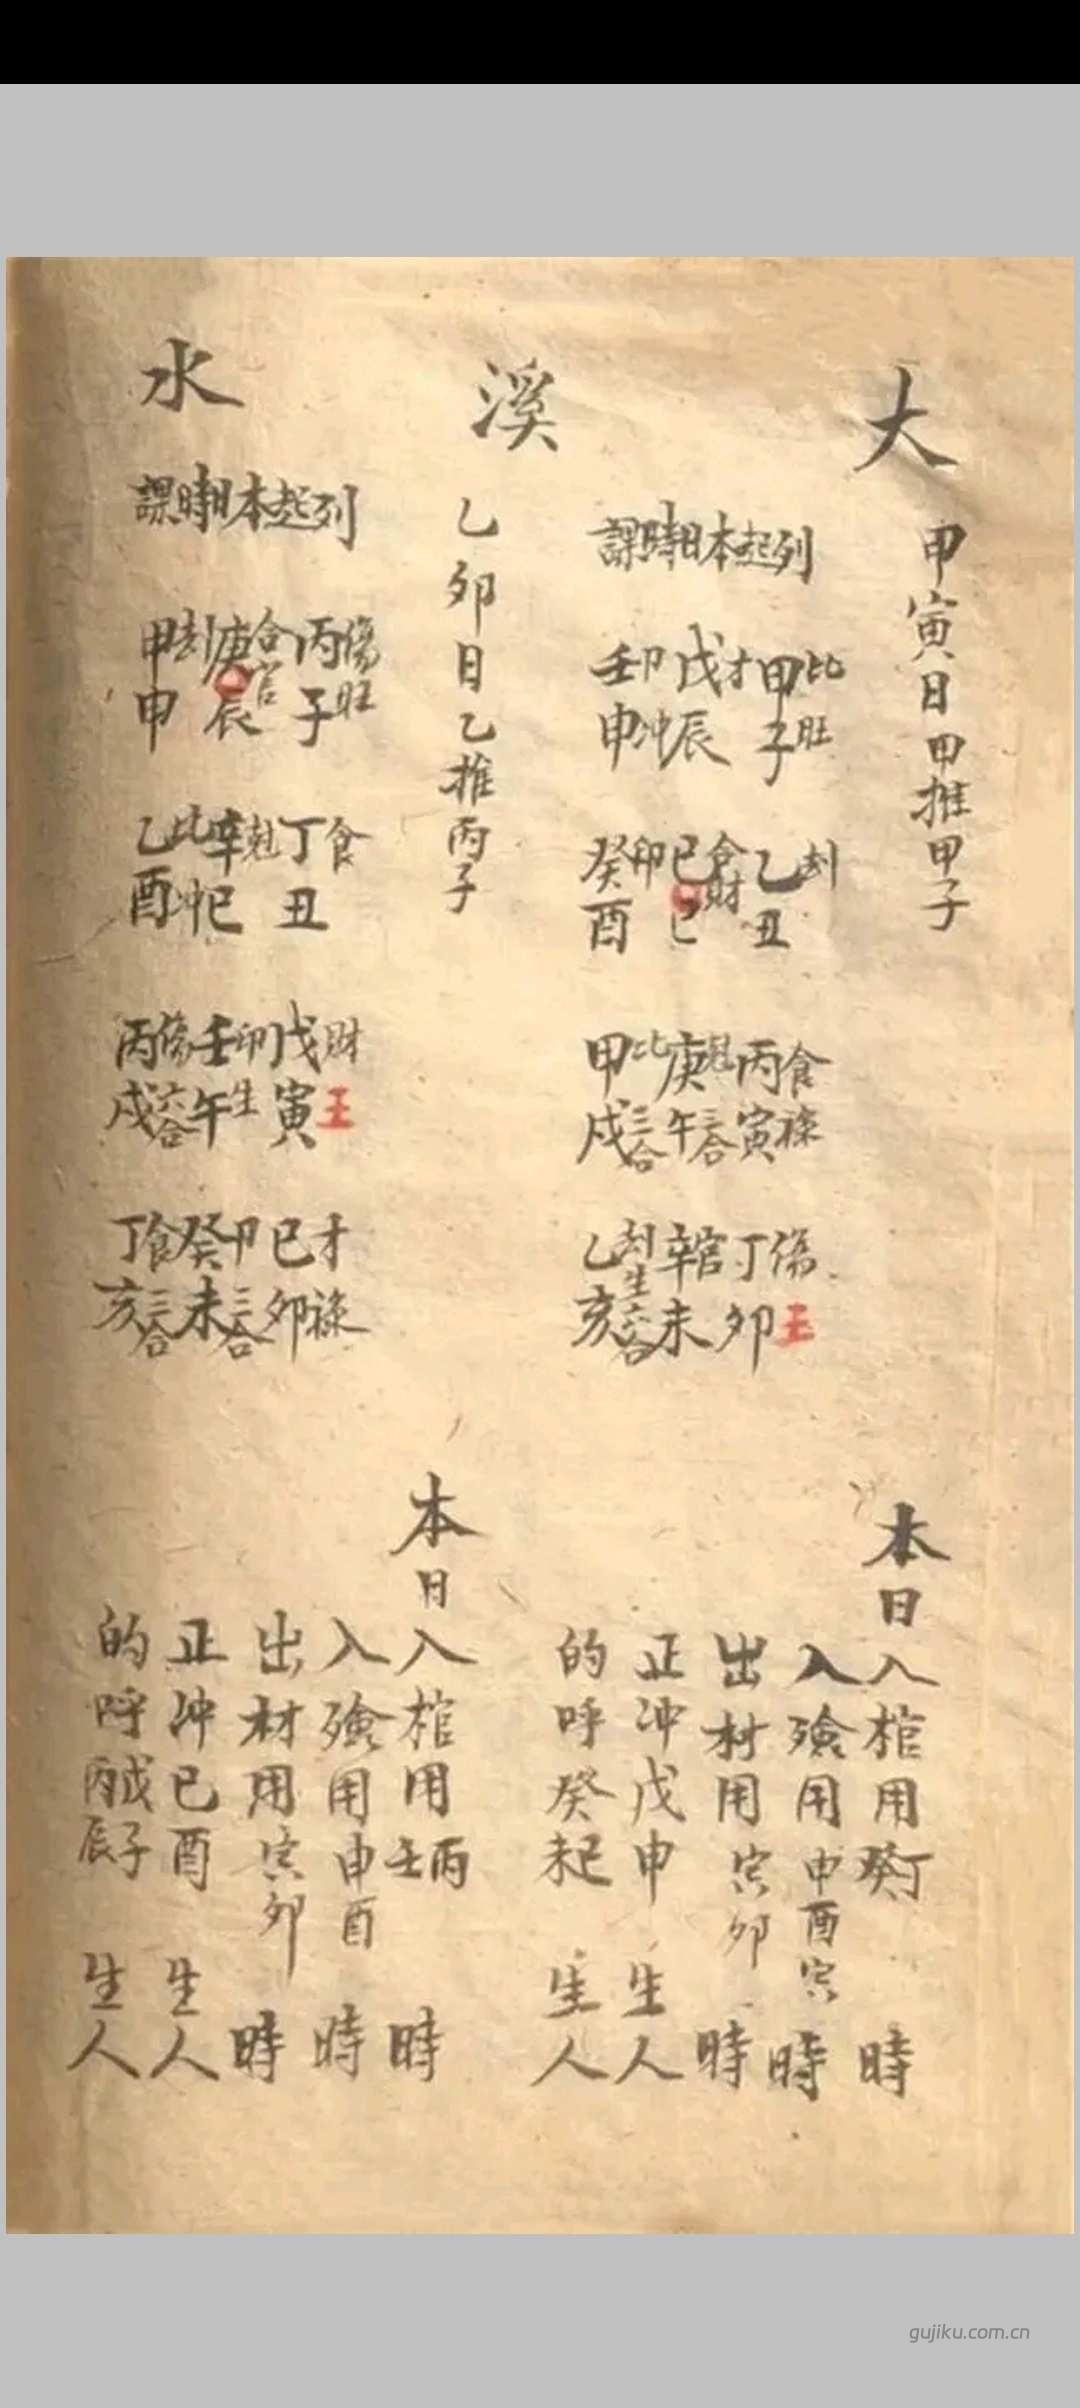 大
甲寅日甲推甲子
列起本日時課
甲比子旺
戊才辰
壬卩申冲
乙刦丑
己合財巳
癸卬酉
丙食寅祿
庚尅午三合
甲比戌三合
丁傷卯王
辛官未
乙刦生亥六合
本日
入棺用丁癸時
入殮用申酉寅時
出材用寅卯時
正冲戊申生人
的呼癸未生人
溪
乙卯日乙推丙子
水
列起本日時課
丙傷子旺
庚合官辰
甲刦申
丁食丑
辛尅巳
乙比酉冲
戊財寅王
壬卬午生
丙傷戌六合
己才卯祿
癸卩未三合
丁食亥三合
本日
入棺用丙壬時
入殮用申酉時
出材用寅卯時
正冲己酉生人
的呼戊子丙辰生人
gujiku.com.cn